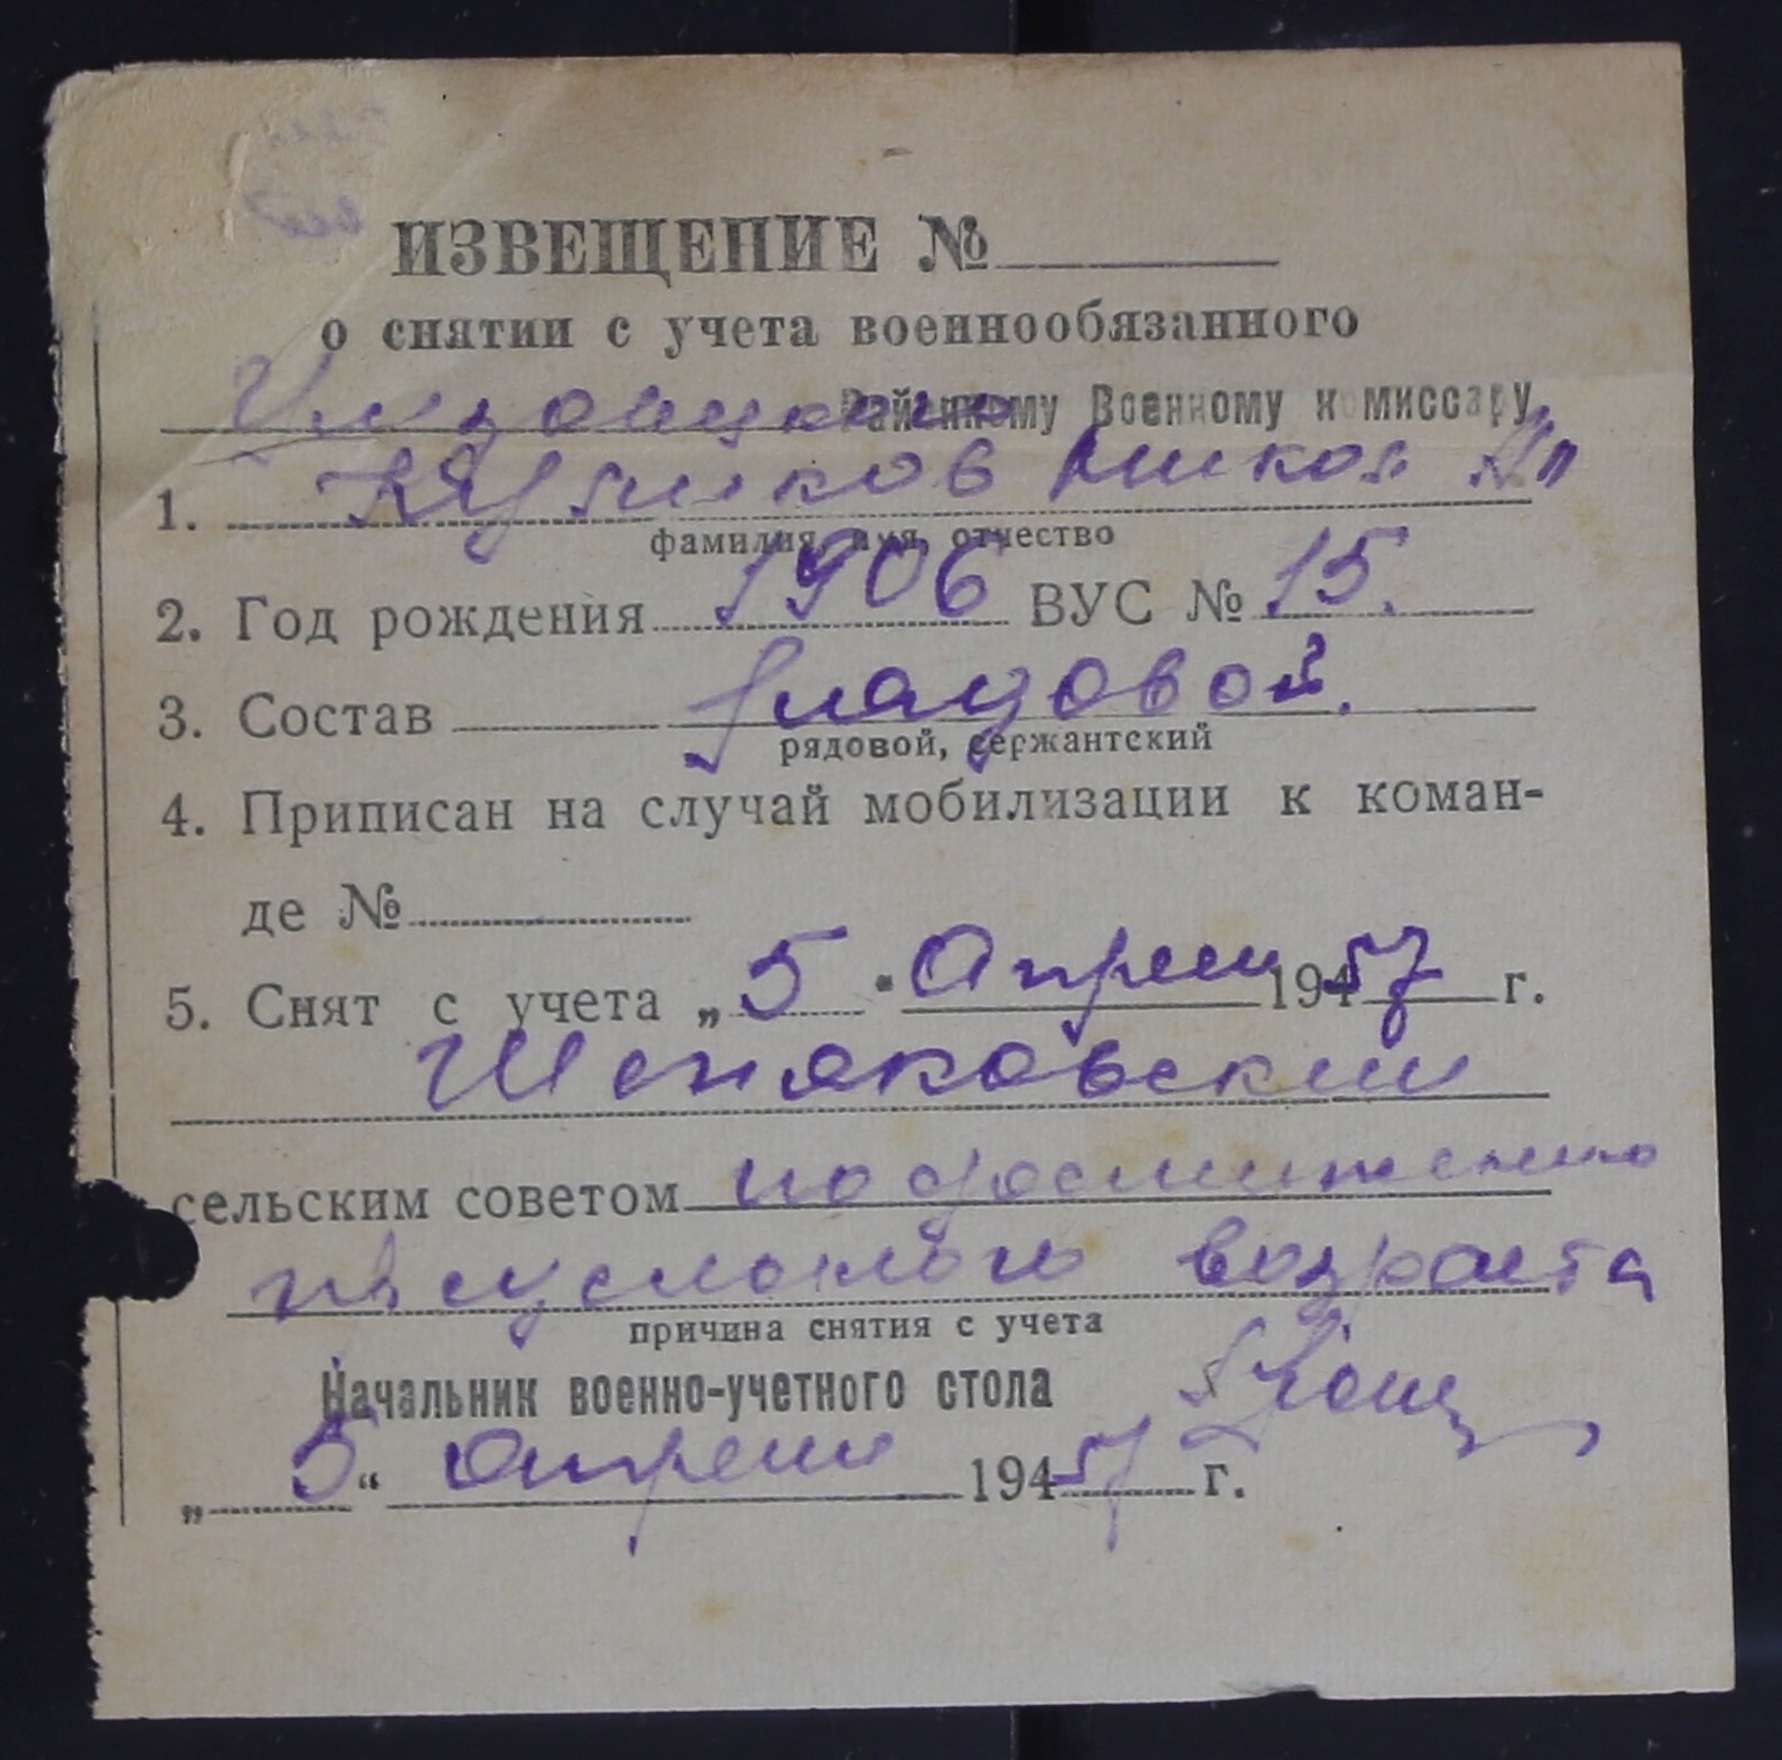 ИЗВЕЩЕНИЕ №
о снятии с учета военнообязанного
Районному Военному комиссару
1. Куликов Никол
фамилия, имя, отчество
2. Год рождения 1906 ВУС № 15.
3. Состав рядовой.
рядовой, сержантский
4. Приписан на случай мобилизации к коман-
де №
5. Снят с учета „5" Апреля 19457 г.
сельским советом по достижению
возраста
причина снятия с учета
Начальник военно-учетного стола
„5“ Апреля 19457 г.